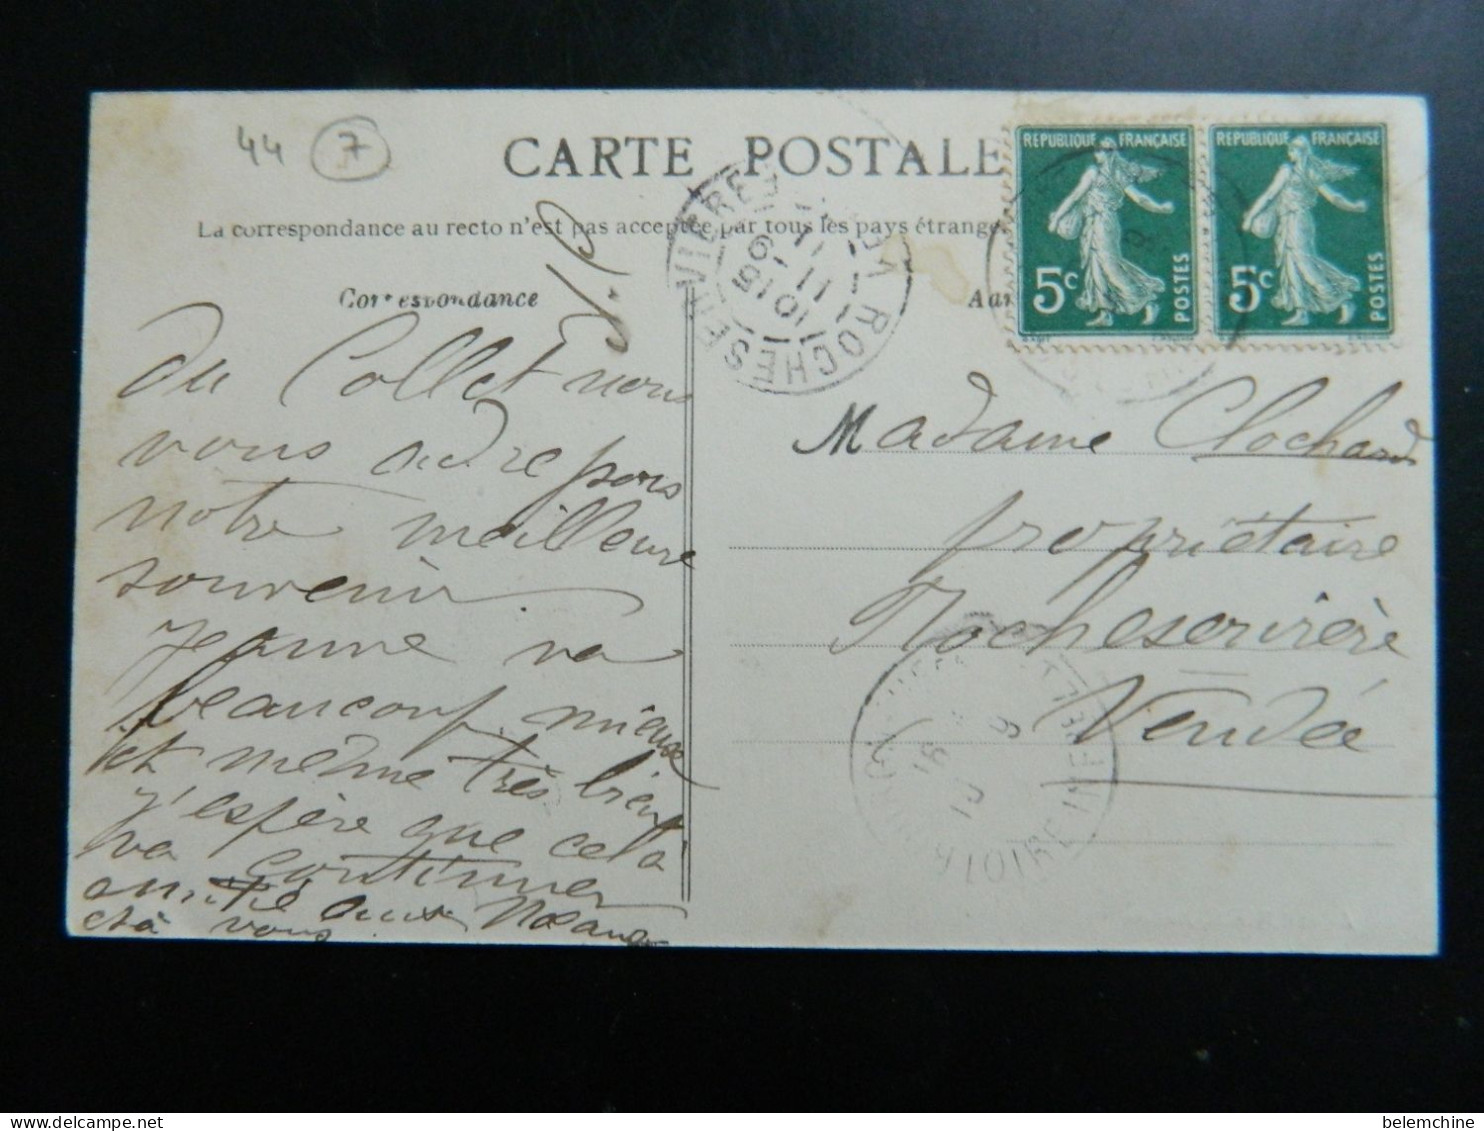 44 7
CARTE POSTALE
La correspondance au recto n'est pas acceptée par tous les pays étrange
Correspondance
RÉPUBLIQUE FRANÇAISE
5c POSTES
RÉPUBLIQUE FRANÇAISE
5c POSTES
LA ROCHESERVIERE
Du Collet nous
vous adressons
notre meilleure
souvenir.
Jeanne va
beaucoup mieux
et même très bien
j'espère que cela
va continuer
amitié aux
et à vous
Madame Clochard
propriétaire
Rocheservière
Vendée
LOIRE INFRE
belemchine